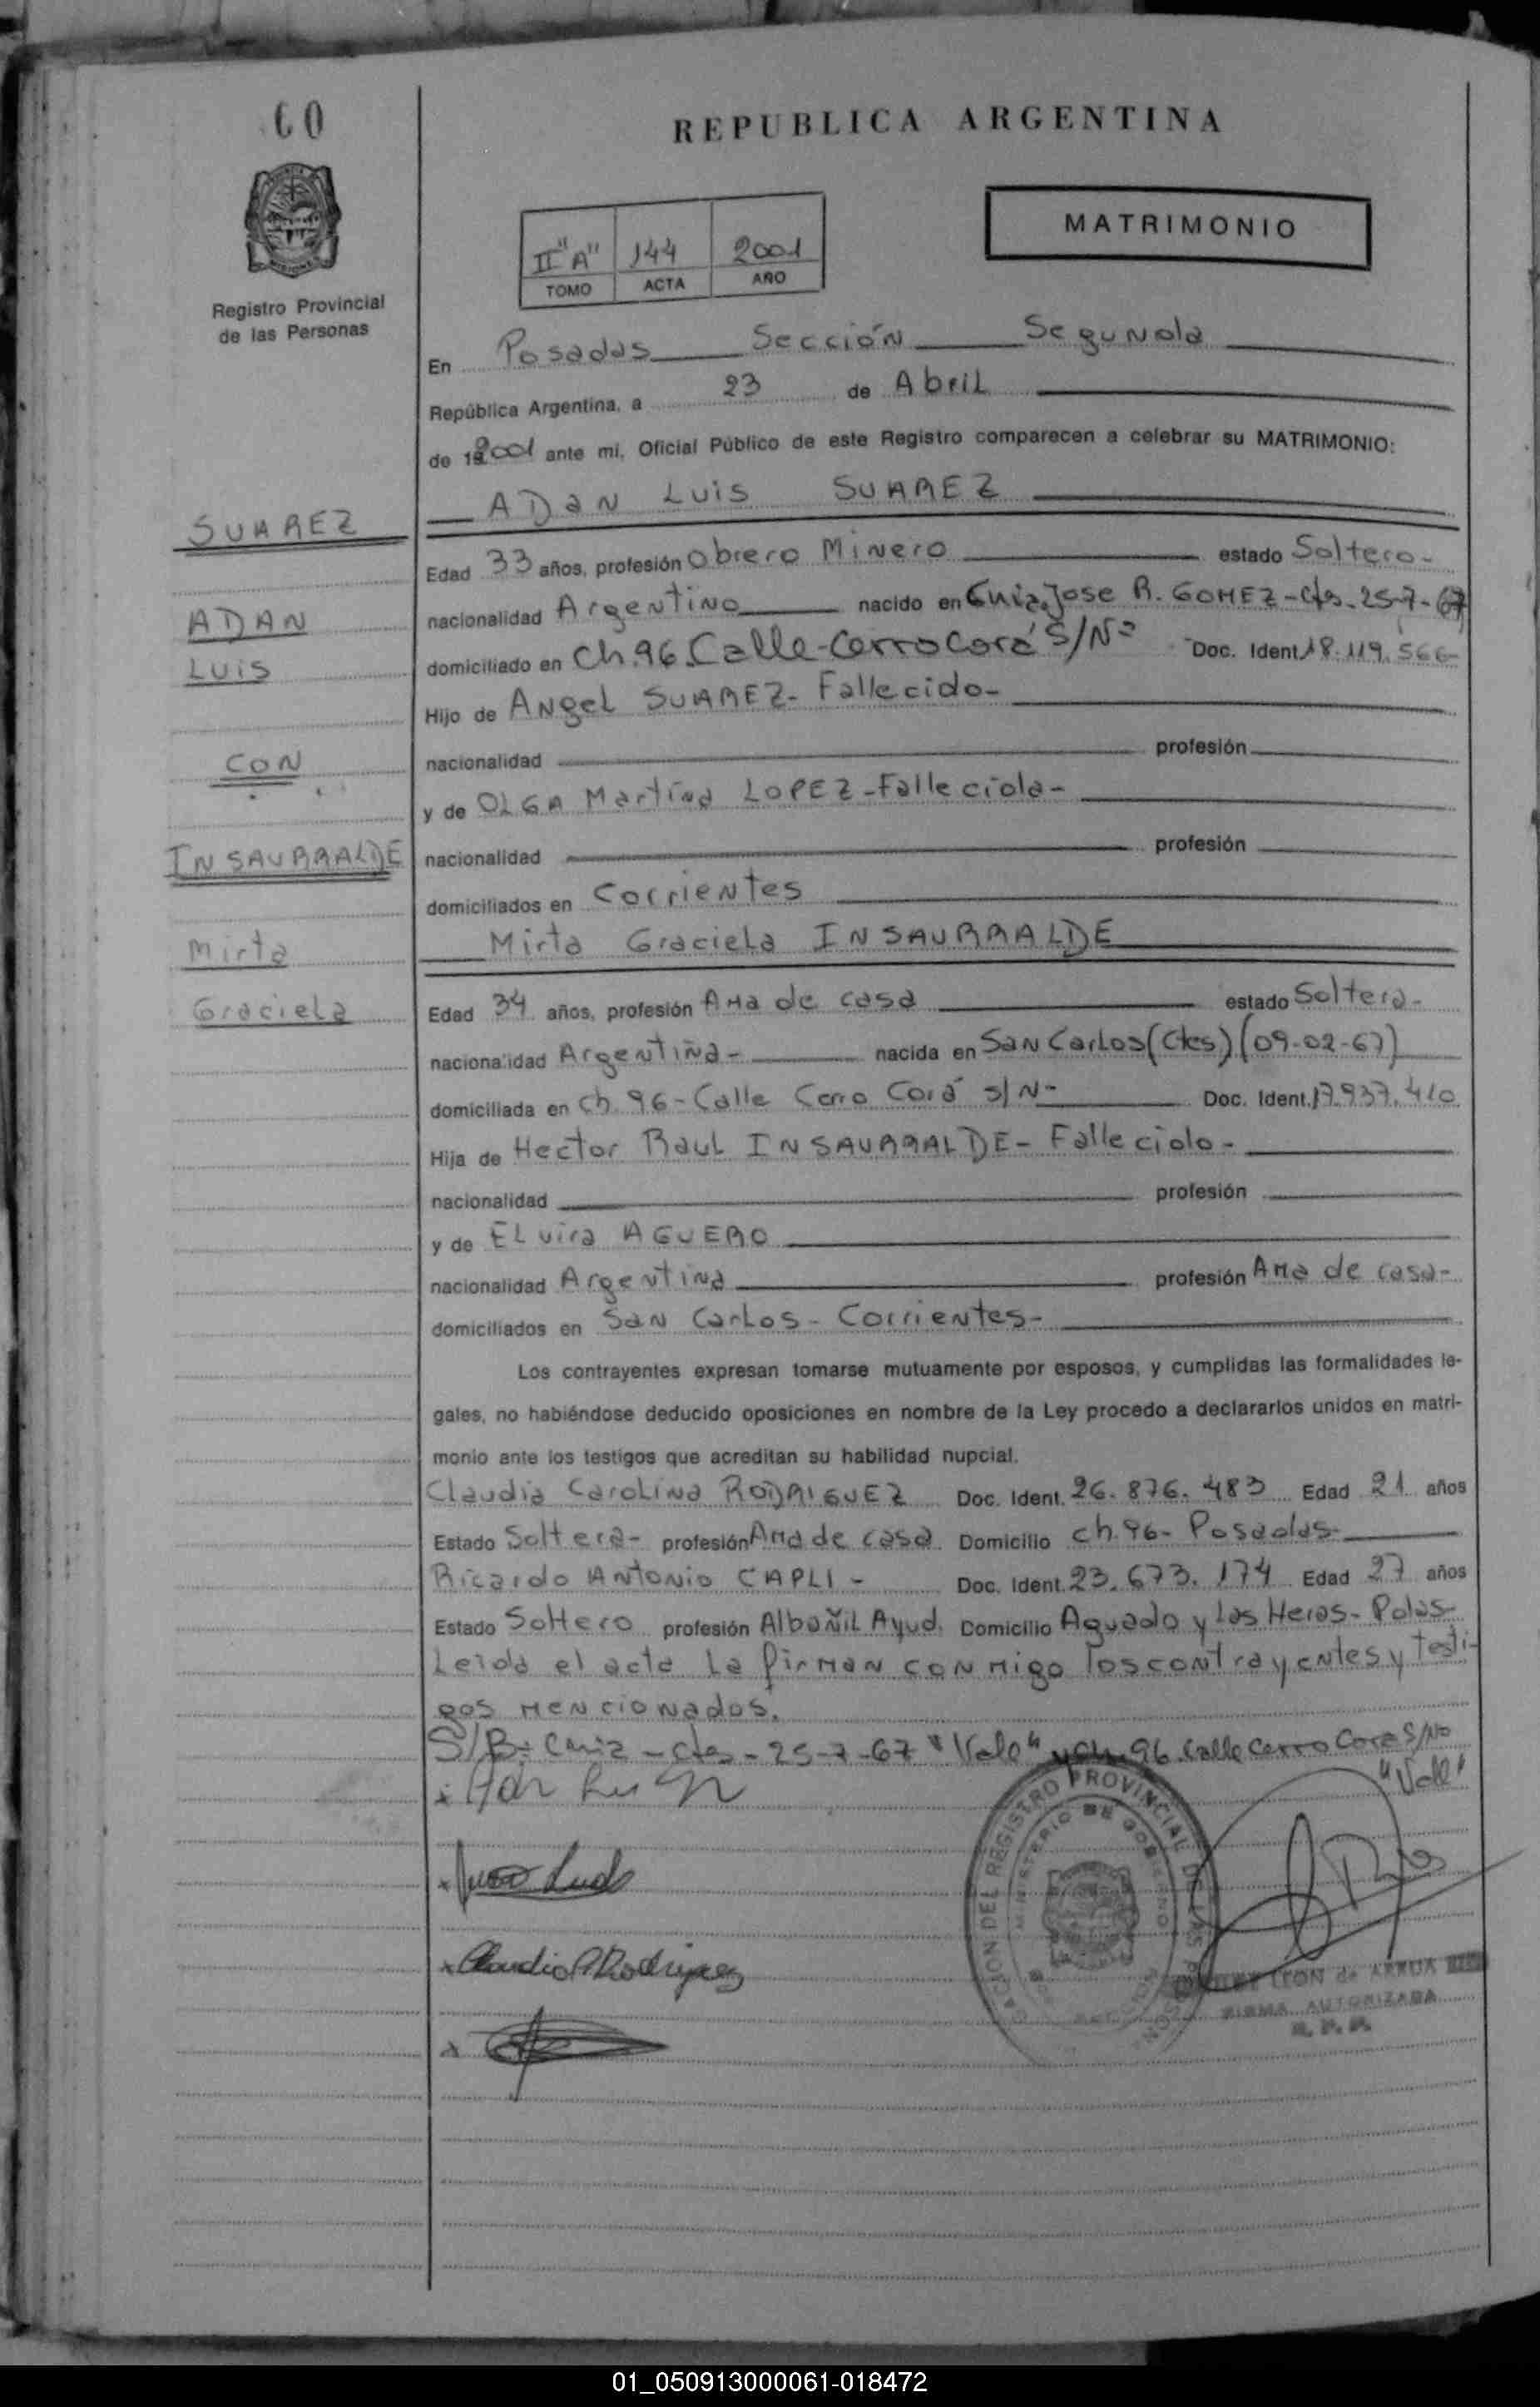 60
REPUBLICA ARGENTINA
MATRIMONIO
II "A" 144 2001
TOMO ACTA AÑO
Registro Provincial
de las Personas
En Posadas Sección Segunda
República Argentina, a 23 de Abril
de 2001 ante mi, Oficial Público de este Registro comparecen a celebrar su MATRIMONIO:
ADan Luis SUAREZ
SUAREZ
ADAN
Luis
CON
INSAURRALDE
Mirta
Graciela
Edad 33 años, profesión Obrero Minero estado Soltero-
nacionalidad Argentino nacido en Jose R. GOMEZ-Ctes-25-7-67
domiciliado en Ch.96 Calle-Cerro Corá S/Nº Doc. Ident. 18.119.566-
Hijo de Angel SUAREZ- Fallecido-
nacionalidad profesión
y de OLGA Martina LOPEZ-Fallecida-
nacionalidad profesión
domiciliados en Corrientes
Mirta Graciela INSAURRALDE
Edad 34 años, profesión Ama de casa estado Soltera-
nacionalidad Argentina- nacida en San Carlos (Ctes) (09-02-67)
domiciliada en Ch. 96-Calle Cerro Corá S/N- Doc. Ident. 17.937.410
Hija de Hector Raul INSAURRALDE- Fallecido-
nacionalidad profesión
y de Elvira AGUERO
nacionalidad Argentina profesión Ama de casa-
domiciliados en San Carlos- Corrientes-
Los contrayentes expresan tomarse mutuamente por esposos, y cumplidas las formalidades le-
gales, no habiéndose deducido oposiciones en nombre de la Ley procedo a declararlos unidos en matri-
monio ante los testigos que acreditan su habilidad nupcial.
Claudia Carolina RODRIGUEZ Doc. Ident. 26.876.483 Edad 21 años
Estado Soltera- profesión Ama de casa Domicilio Ch.96- Posadas-
Ricardo Antonio CAPLI- Doc. Ident. 23.673.174 Edad 27 años
Estado Soltero profesión Albañil Ayud. Domicilio Aguado y Las Heras- Pdas-
Leida el acta la firman conmigo los contrayentes y testi-
gos mencionados.
S/B: -Ctes-25-7-67 "Vale" y Ch 96 Calle Cerro Corá S/No
"Vale"
Claudia Rodriguez
REGISTRO PROVINCIAL DE LAS
MINISTERIO DE GOBIERNO
LEON de ARRUA
FIRMA AUTORIZADA
R. P. P.
01_050913000061-018472